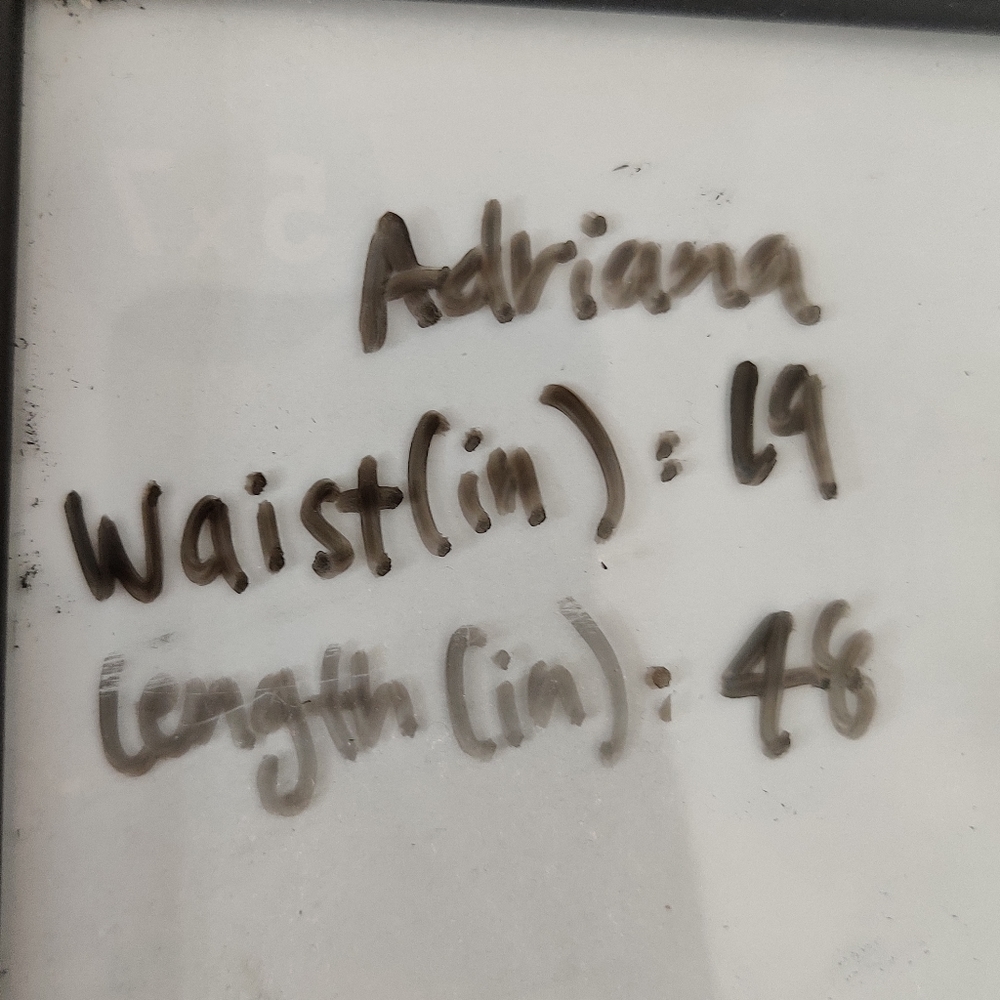 Adriana
Waist(in): 19
Length(in): 48
5x7